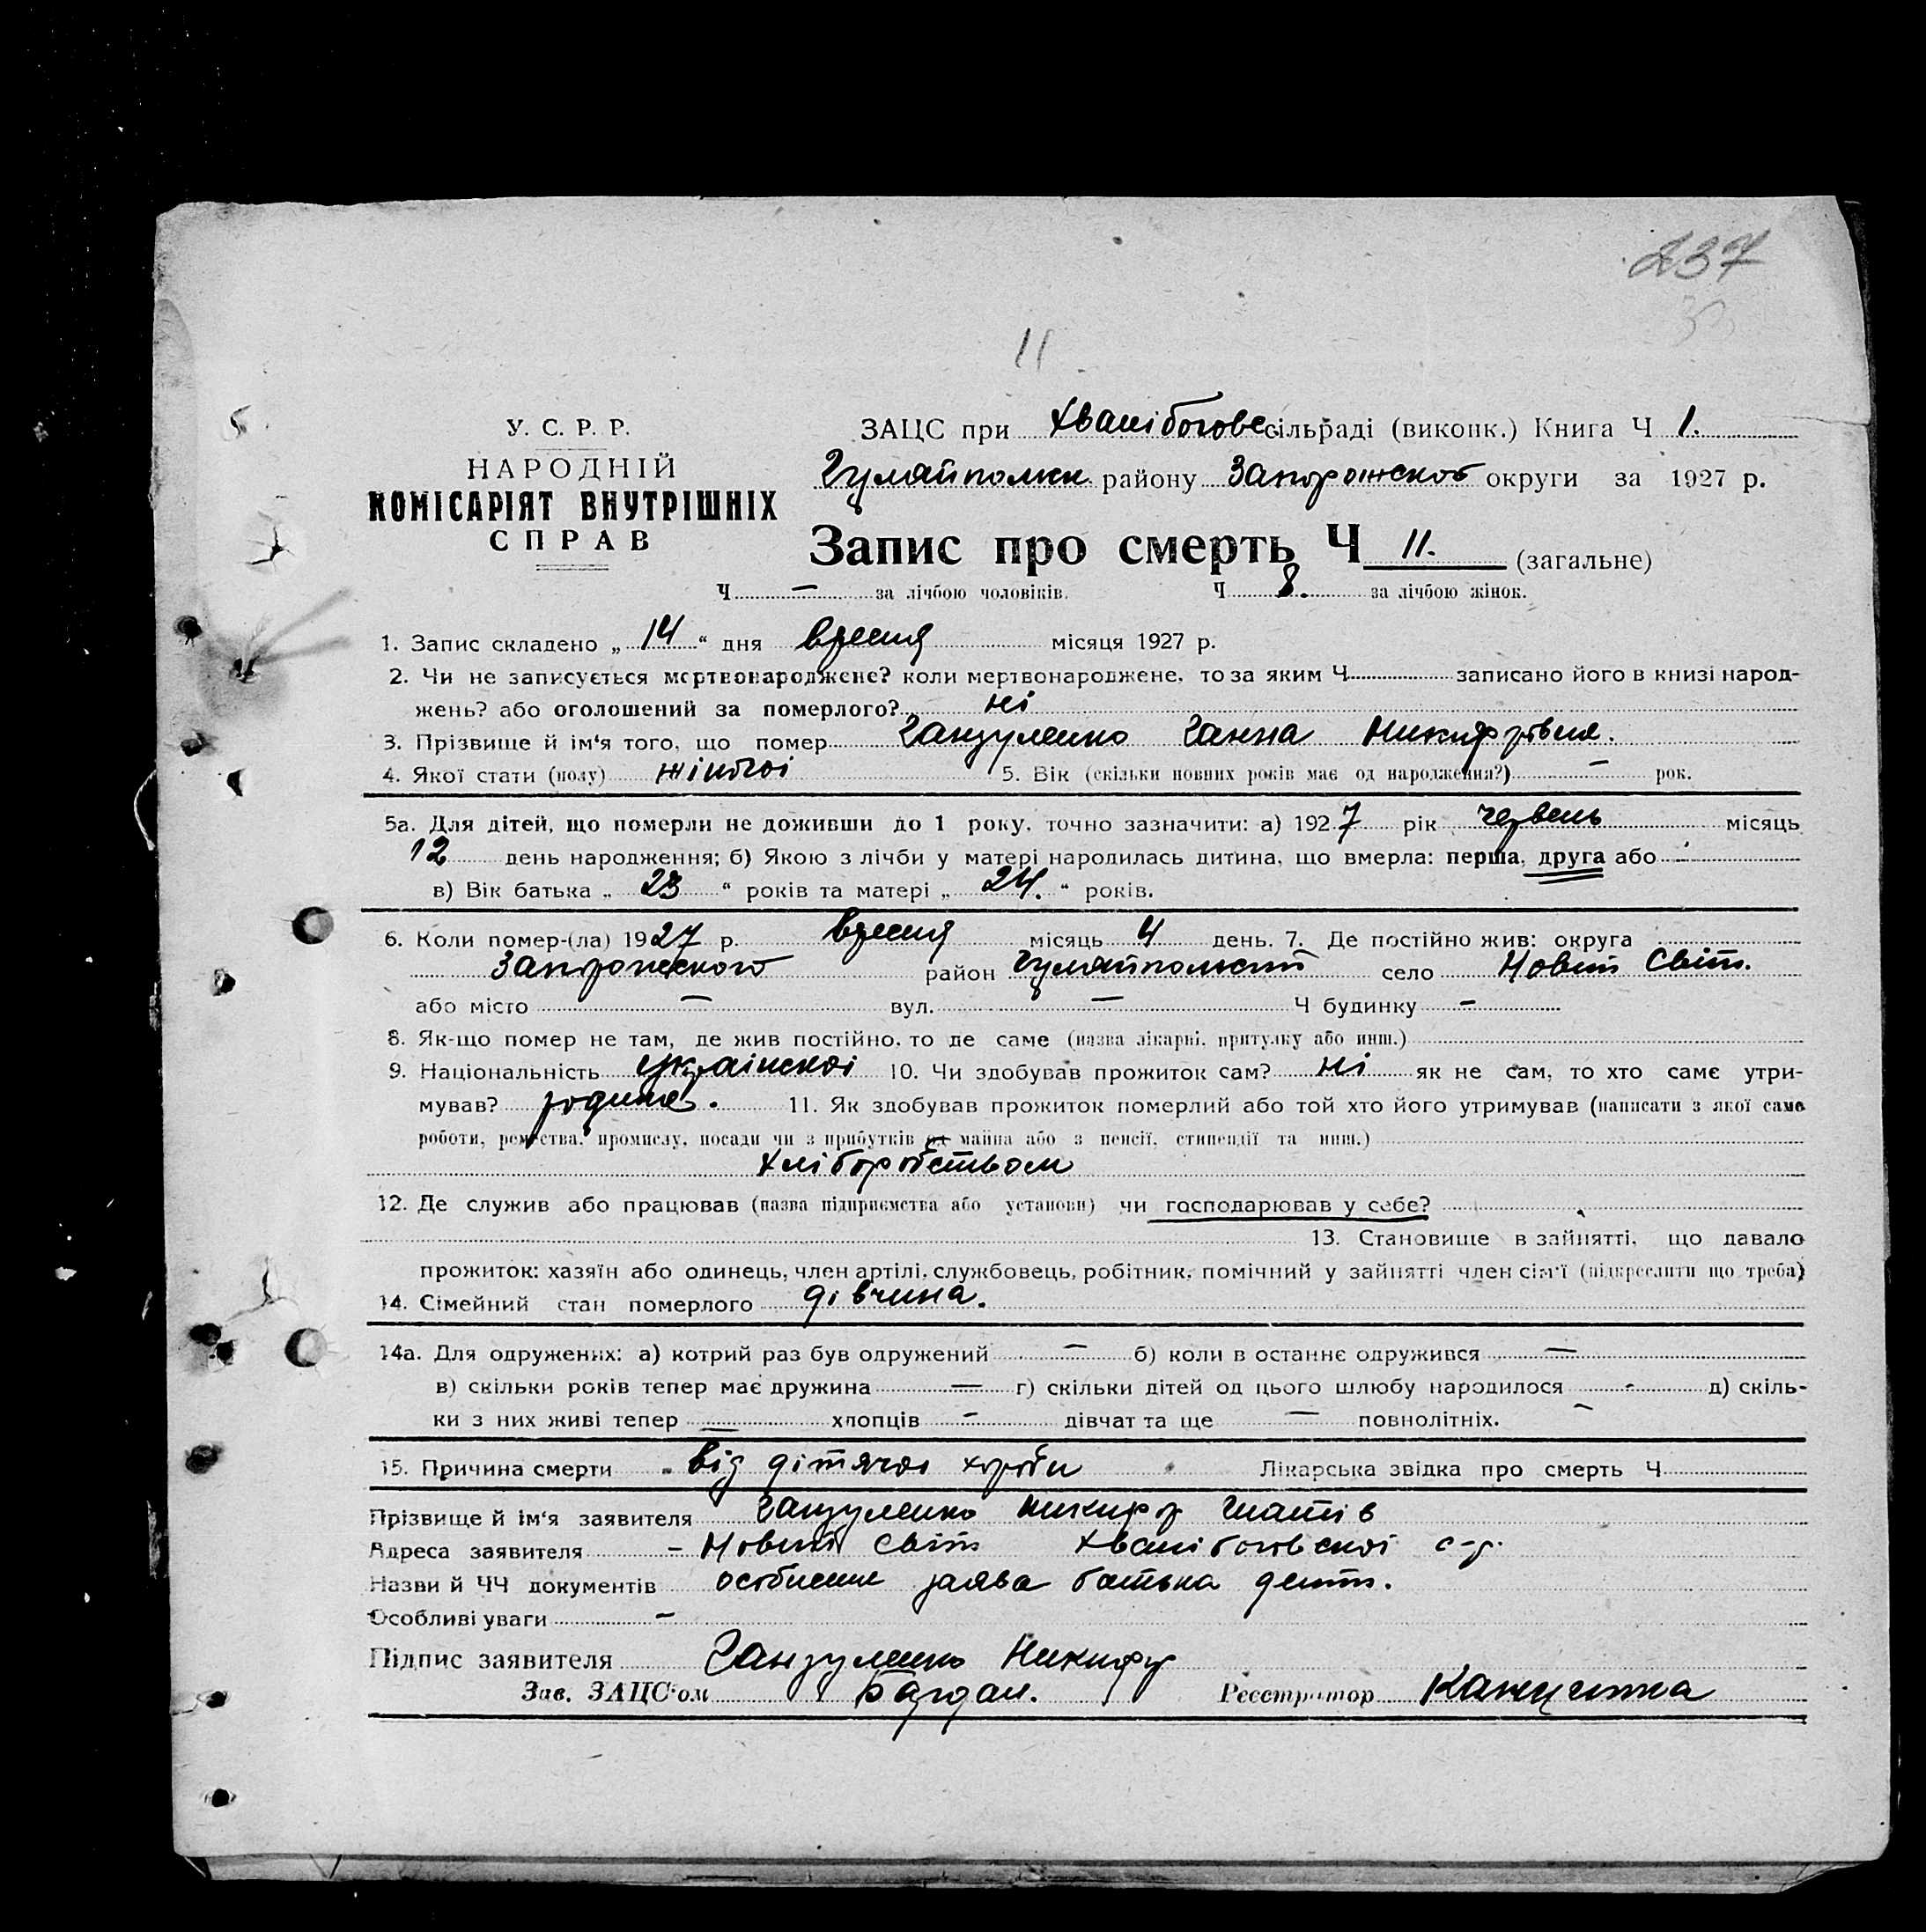 237
11
У. С. Р. Р.
НАРОДНІЙ
КОМІСАРІЯТ ВНУТРІШНІХ
СПРАВ
ЗАЦС при Хванібогове сільраді (виконк.) Книга Ч 1.
Гуляйполки району Запорожског округи за 1927 р.
Запис про смерть Ч 11. (загальне)
Ч — за лічбою чоловіків. Ч 8. за лічбою жінок.
1. Запис складено „ 14 “ дня вресня місяця 1927 р.
2. Чи не записується мертвонароджене? коли мертвонароджене, то за яким Ч записано його в книзі народ-
жень? або оголошений за померлого? ні
3. Прізвище й ім'я того, що помер Ганзуленко Ганна Никифрівна.
4. Якої стати (полу) жіночоі 5. Вік (скільки повних років має од народження?) — рок.
5а. Для дітей, що померли не доживши до 1 року, точно зазначити: а) 1927 рік червень місяць
12 день народження; б) Якою з лічби у матері народилась дитина, що вмерла: перша, друга або -
в) Вік батька „ 23 “ років та матері „ 24. “ років.
6. Коли помер-(ла) 1927 р. вресня місяць 4 день. 7. Де постійно жив: округа
Запорожского район Гуляйпольский село Новий Світ.
або місто — вул. — Ч будинку -
8. Як-що помер не там, де жив постійно, то де саме (назва лікарні, притулку або инш.)
9. Національність украінскоі 10. Чи здобував прожиток сам? ні як не сам, то хто саме утри-
мував? родина. 11. Як здобував прожиток померлий або той хто його утримував (написати з якої саме
роботи, ремества, промислу, посади чи з прибутків од майна або з пенсії, стипендії та инш.)
хліборобством
12. Де служив або працював (назва підприємства або установи) чи господарював у себе?
13. Становище в зайнятті, що давало
прожиток: хазяїн або одинець, член артілі, службовець, робітник, помічний у зайнятті член сім'ї (підкреслити що треба)
14. Сімейний стан померлого дівчина.
14а. Для одружених: а) котрий раз був одружений — б) коли в останнє одружився —
в) скільки років тепер має дружина — г) скільки дітей од цього шлюбу народилося - д) скіль-
ки з них живі тепер — хлопців - дівчат та ще — повнолітніх.
15. Причина смерти від дітячоі хороби Лікарська звідка про смерть Ч
Прізвище й ім'я заявителя Ганзуленко Никифор
Адреса заявителя - Новий Світ Хванібоговскоі с-р.
Назви й ЧЧ документів особисте заява батька
Особливі уваги -
Підпис заявителя Ганзуленко Никифр
Зав. ЗАЦС'ом Реєстратор